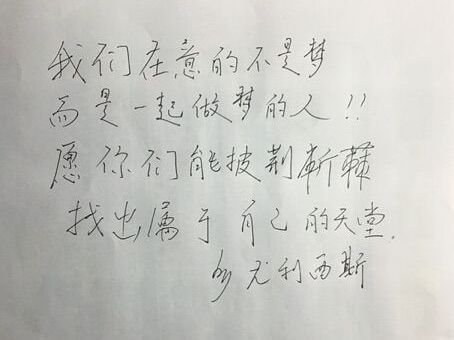 我们在意的不是梦
而是一起做梦的人!!
愿你们能披荆斩棘
找出属于自己的天堂.
尤利西斯